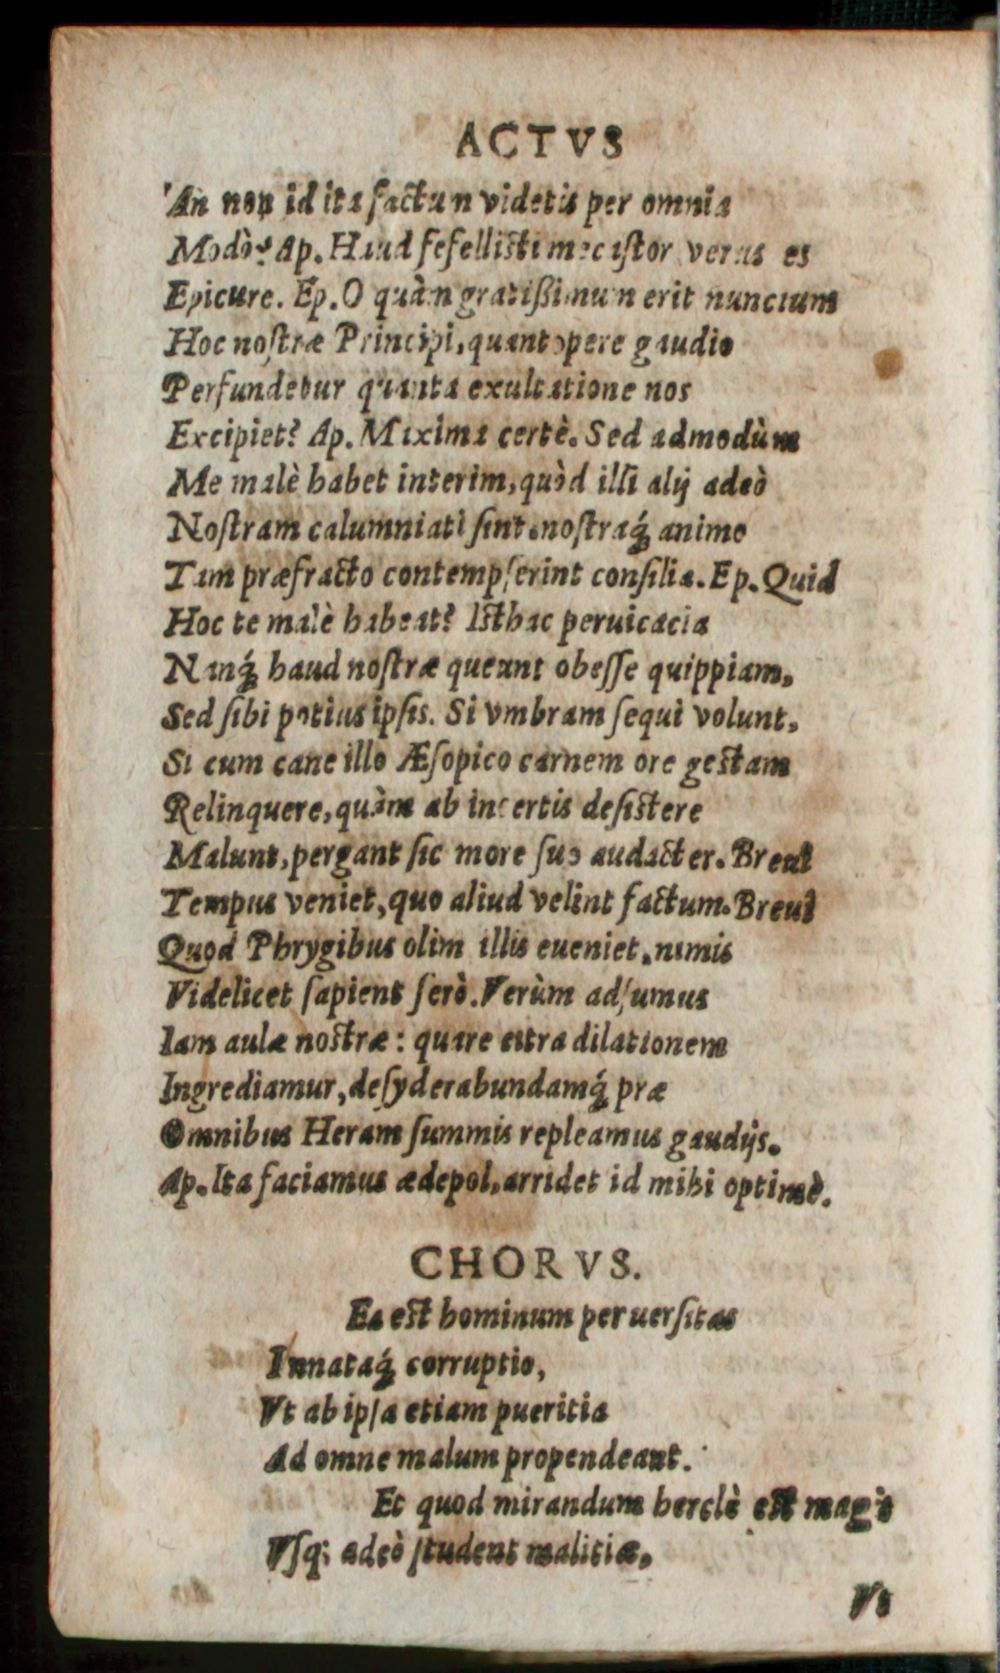 ACTVS
An non id ita factum videtis per omnia
Modò? Ap. Haud fefellisti me: Castor verus es
Epicure. Ep. O quàm gratißimum erit nuncium
Hoc nostræ Principi, quantopere gaudio
Perfundetur quanta exultatione nos
Excipiet? Ap. Maxima certè. Sed admodùm
Me malè habet interim, quòd illi alij adeò
Nostram calumniati sint, nostraq́; animo
Tam præfracto contempserint consilia. Ep. Quid
Hoc te malè habeat? Isthac peruicacia
Nanq́; haud nostræ queant obesse quippiam,
Sed sibi potius ipsis. Si vmbram sequi volunt,
Si cum cane illo Æsopico carnem ore gestam
Relinquere, quàm ab incertis desistere
Malunt, pergant sic more suo audacter. Breui
Tempus veniet, quo aliud velint factum. Breui
Quod Phrygibus olim illis eueniet, nimis
Videlicet sapient serò. Verùm adsumus
Iam aulæ nostræ: quare citra dilationem
Ingrediamur, desyderabundamq́; præ
Omnibus Heram summis repleamus gaudijs.
Ap. Ita faciamus ædepol, arridet id mihi optimè.
CHORVS.
Ea est hominum peruersitas
Innataq́; corruptio,
Vt ab ipsa etiam pueritia
Ad omne malum propendeant.
Et quod mirandum herclè est magis
Vsq; adeò student malitiæ,
Vt